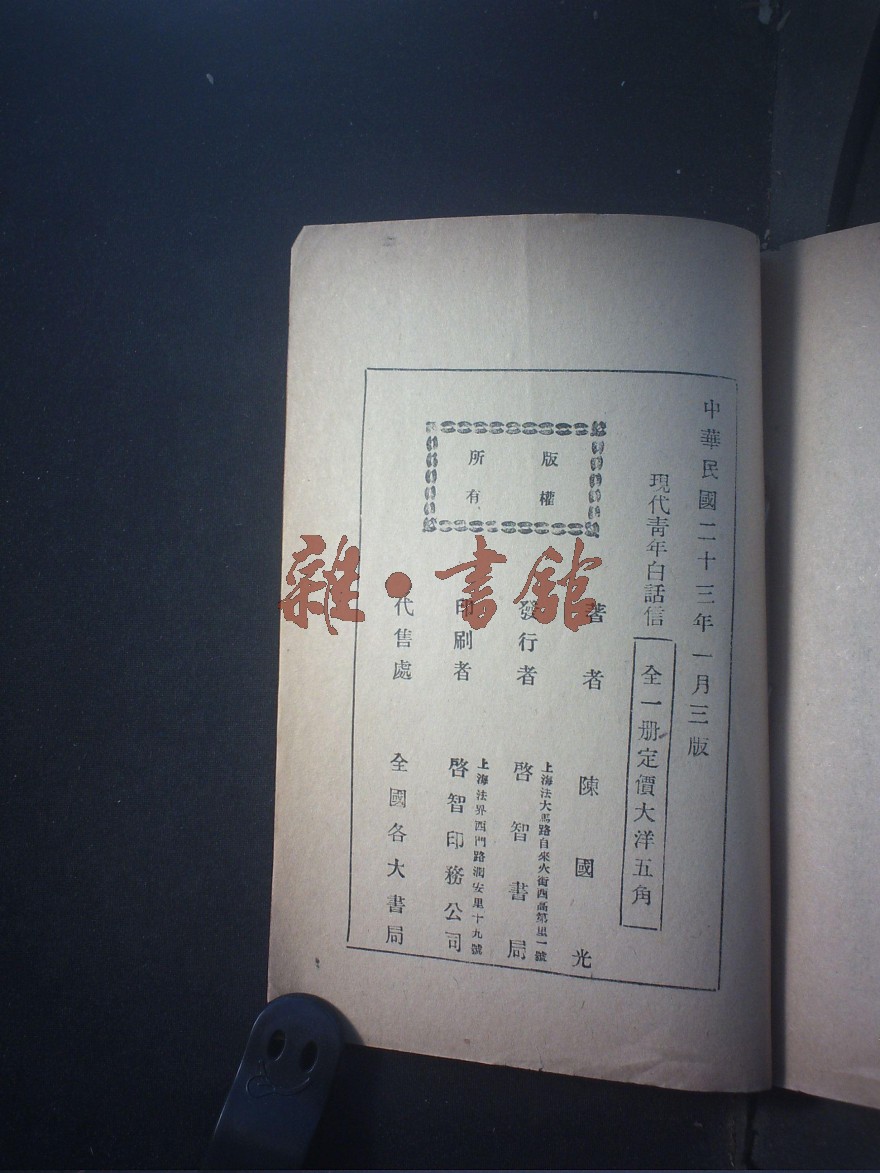 中華民國二十三年一月三版
現代靑年白話信
全一册定價大洋五角
版權
所有
著者 陳國光
發行者 啓智書局
上海法大馬路自來火街西
第里一號
印刷者 啓智印務公司
上海法界西門路潤安里十九號
代售處 全國各大書局
雜·書館